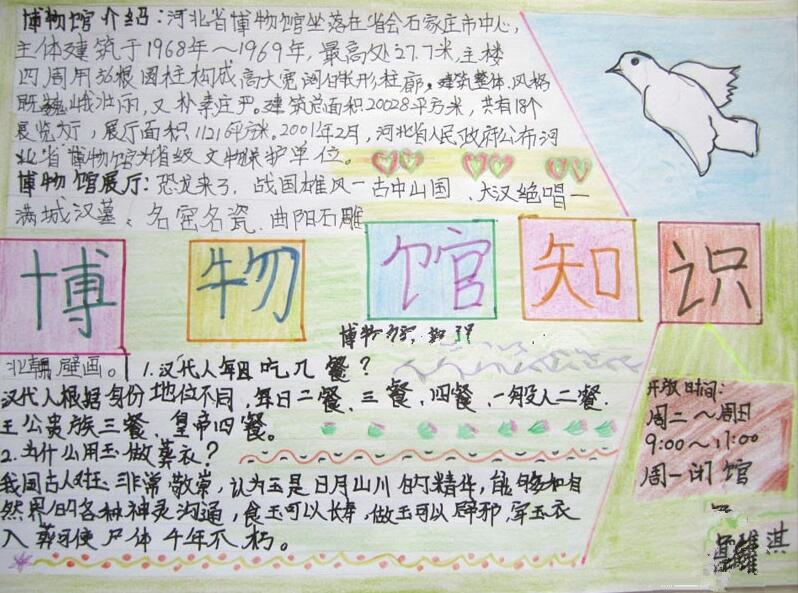 博物馆介绍:河北省博物馆坐落在省会石家庄市中心,
主体建筑于1968年~1969年,最高处27.7米,主楼
四周用30根圆柱构成高大宽阔的伟形柱廊,建筑整体风格
既巍峨壮丽,又朴素庄严。建筑总面积20028平方米,共有18个
展览大厅,展厅面积1121平方米。2001年2月,河北省人民政府公布河
北省博物馆为省级文物保护单位。
博物馆展厅:恐龙来了、战国雄风—古中山国、大汉绝唱—
满城汉墓、名窑名瓷、曲阳石雕
博物馆知识
北朝壁画。
1.汉代人每日吃几餐?
汉代人根据身份地位不同,每日二餐、三餐、四餐、一般人二餐.
王公贵族三餐、皇帝四餐。
2.为什么用玉做葬衣?
我国古人对玉非常敬崇,认为玉是日月山川的精华,能够和自
然界的各种神灵沟通,食玉可以长寿,做玉可以辟邪,穿玉衣
入葬可使尸体千年不朽。
开放时间:
周二~周日
9:00~17:00
周一闭馆
淇